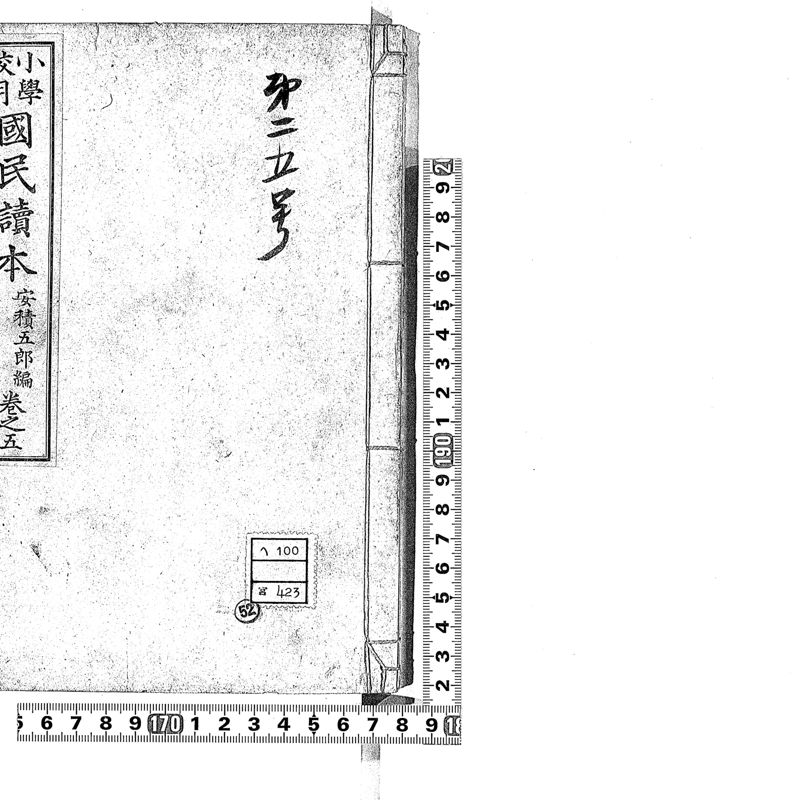 第二五号
小學校用
國民讀本
安積五郎編
卷之五
ヘ 100
宮 423
52
2 3 4 5 6 7 8 9 190 1 2 3 4 5 6 7 8 9 2
6 7 8 9 170 1 2 3 4 5 6 7 8 9